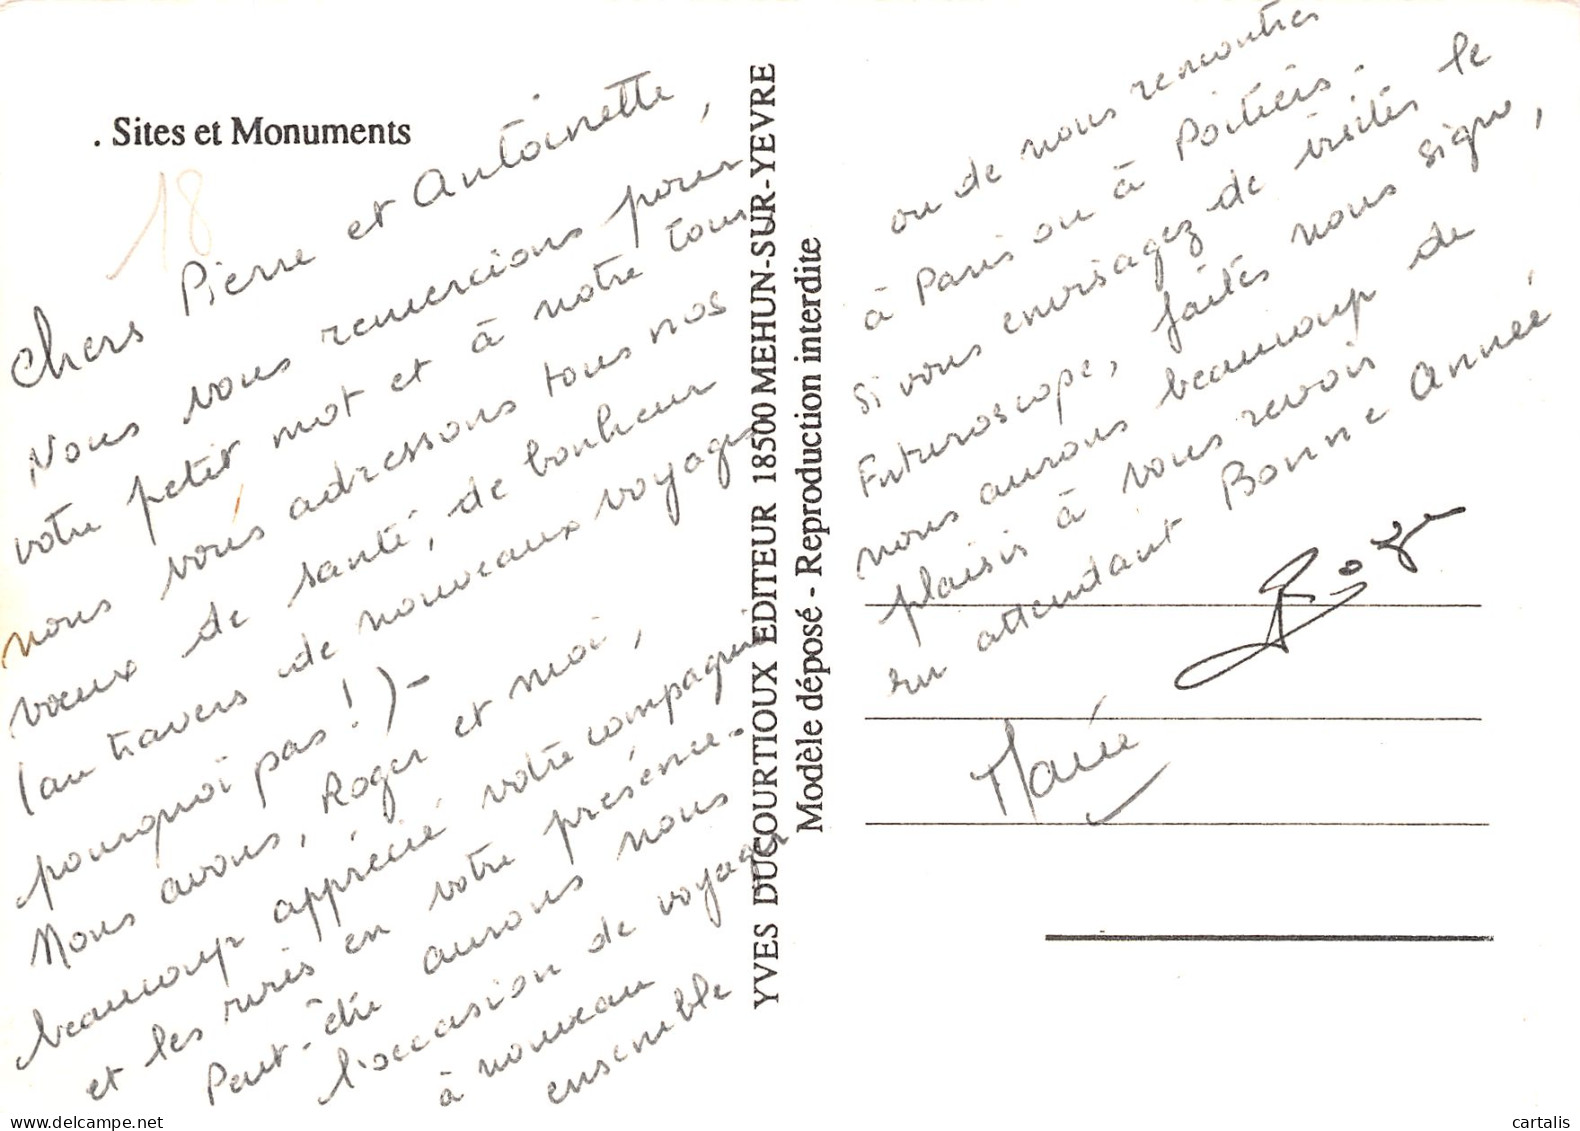 . Sites et Monuments
18
Chers Pierre et Antoinette,
Nous vous remercions pour
votre petit mot et à notre tour
nous vous adressons tous nos
voeux de santé, de bonheur
(au travers de nouveaux voyages
pourquoi pas!)-
Nous avons, Roger et moi,
beaucoup apprécié votre compagnie
et les rires en votre présence.
Peut-être aurons nous
l'occasion de voyager
à nouveau
ensemble
YVES DUCOURTIOUX EDITEUR 18500 MEHUN-SUR-YEVRE
Modèle déposé - Reproduction interdite
ou de nous rencontrer
à Paris ou à Poitiers.
Si vous envisagez de visiter le
Futuroscope, faites nous signe,
nous aurons beaucoup de
plaisir à vous revoir
en attendant Bonne Année
Roger
Marie
cartalis
www.delcampe.net